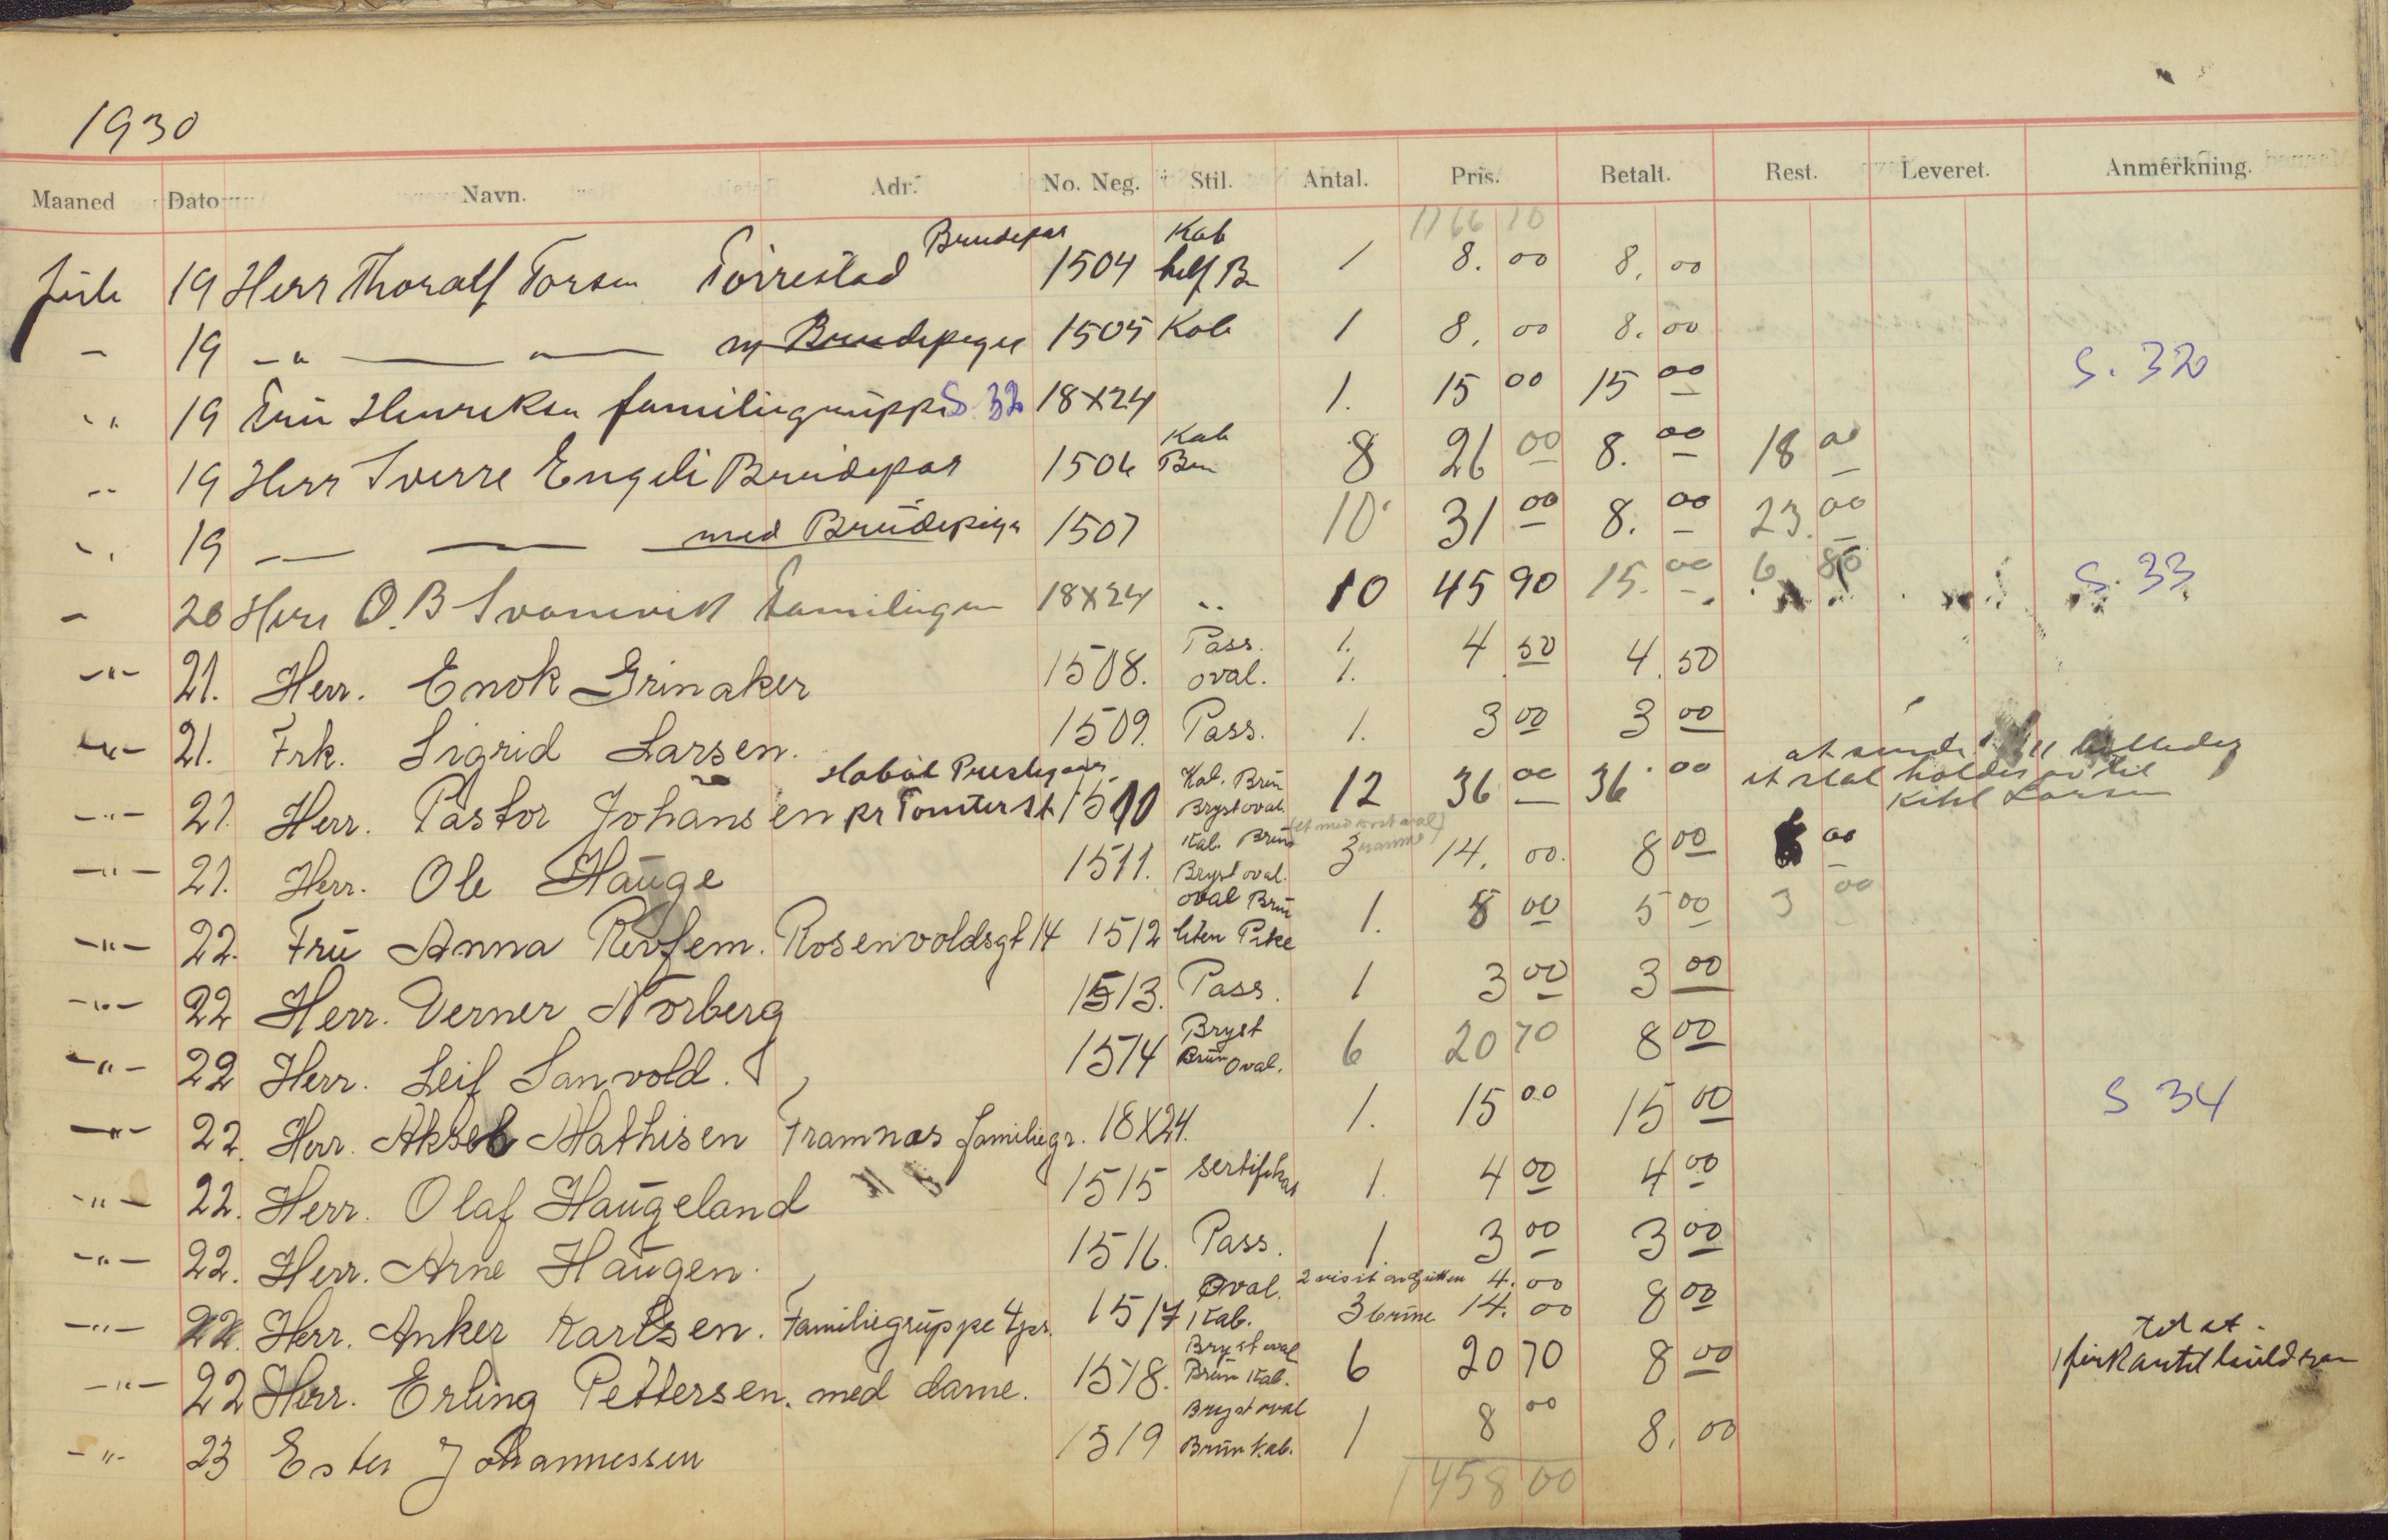 1930
Maaned Dato Navn. Adr. No. Neg. Stil. Antal. Pris. Betalt. Rest. Leveret. Anmerkning.
1166 10
19 Herr Thoralf Torsen Torrestad Brudepar 1504 Kab half Br 1 8. 00 8. 00
19 — " — " — m Brudepige 1505 Kab 1 8. 00 8. 00
19 Henreksen familiegruppe S. 32 18X24 1. 15 00 15 00 S. 32
19 Herr Sverre Engeli Brudepar 1506 Kab Brn 8 26 00 8. 00 18 00
19 — — med Brudepige 1507 10 31 00 8. 00 23. 00
20 Herr O. B Svomvik Familiegr 18X24 " 10 45 90 15. 00 6 80 S. 33
-"- 21. Herr. Enok Grinaker 1508. Pass. oval. 1. 1. 4 50 4. 50
-"- 21. Frk. Sigrid Larsen. 1509. Pass. 1. 3 00 3 00
-"- 21. Herr. Pastor Johansen Hobøl Prestegaar pr Tomter St 1510 Kab. Brün Bryst oval. 12 36 00 36 00 at sende billeder
holdes
Larsen
-"- 21. Herr. Ole Hauge 1511. Kab. Brün Bryst oval. 3 14. 00. 8 00 00
-"- 22. Frü Anna Revfem. Rosenvoldsgt 14 1512 oval Brün liten Pike 1. 8 00 5 00 3 00
-"- 22 Herr. Verner Norberg 1513. Pass. 1 3 00 3 00
-"- 22 Herr. Leif Sanvold. 1514 Bryst Brün Oval. 6 20 70 8 00
-"- 22. Herr. Aksel Mathisen Framnæs familiegr. 18X24. 1. 15 00 15 00 S 34
-"- 22. Herr. Olaf Haugeland 1515 sertifikat 1. 4 00 4 00
-"- 22. Herr. Arne Haugen. 1516. Pass. 1. 3 00 3 00
-"- 22. Herr. Anker Karlsen. Familiegruppe 4 prs. 1517 Oval. Kab. 2 visit 4. 00 3 brüne 14. 00 8 00
-"- 22 Herr. Erling Pettersen. med dame. 1518. Bryst oval Brün Kab. 6 20 70 8 00
-"- 23 Ester Johannessen 1519 Bryst oval Brün Kab. 1 8 00 8. 00
1458 00